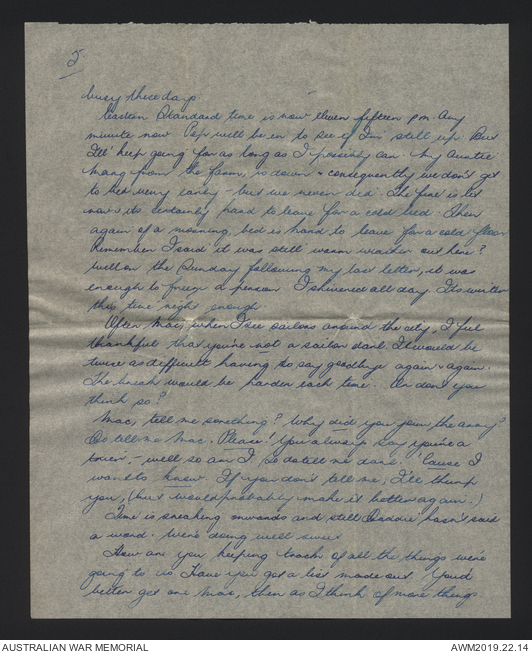 5
busy these days.
Eastern Standard time is now eleven fifteen pm. Any
minute now Pop will be in to see if I'm still up. But
I'll keep going for as long as I possibly can. My Auntie
from the farm, is down & consequently we don't get
to bed very early - but we never did. The fire is lit
now & its certainly hard to leave for a cold bed. Then
again of a morning, bed is hard to leave for a cold floor
Remember I said it was still warm weather out here?
Well on the Sunday following my last letter, it was
enough to freeze a person I shivered all day. Its winter
this time right enough
Often Mac, when I see sailors around the city, I feel
thankful that you're not a sailor darl. It would be
twice as difficult having to say goodbye again & again.
The break would be harder each time. Or don't you
think so?
Mac, tell me something? Why did you join the army?
Do tell me Mac. Please! You always say you're a
- well so am I so do tell me darl. 'Cause I
want to know If you don't tell me, I'll thump
you, (but would probably make it better again.)
Time is sneaking onwards and still Daddie hasn't said
a word. We're doing well sweet
How are you keeping track of all the things we're
going to do Have you got a list made out. You'd
better get one Mac, then as I think of more things
AUSTRALIAN WAR MEMORIAL
AWM2019.22.14